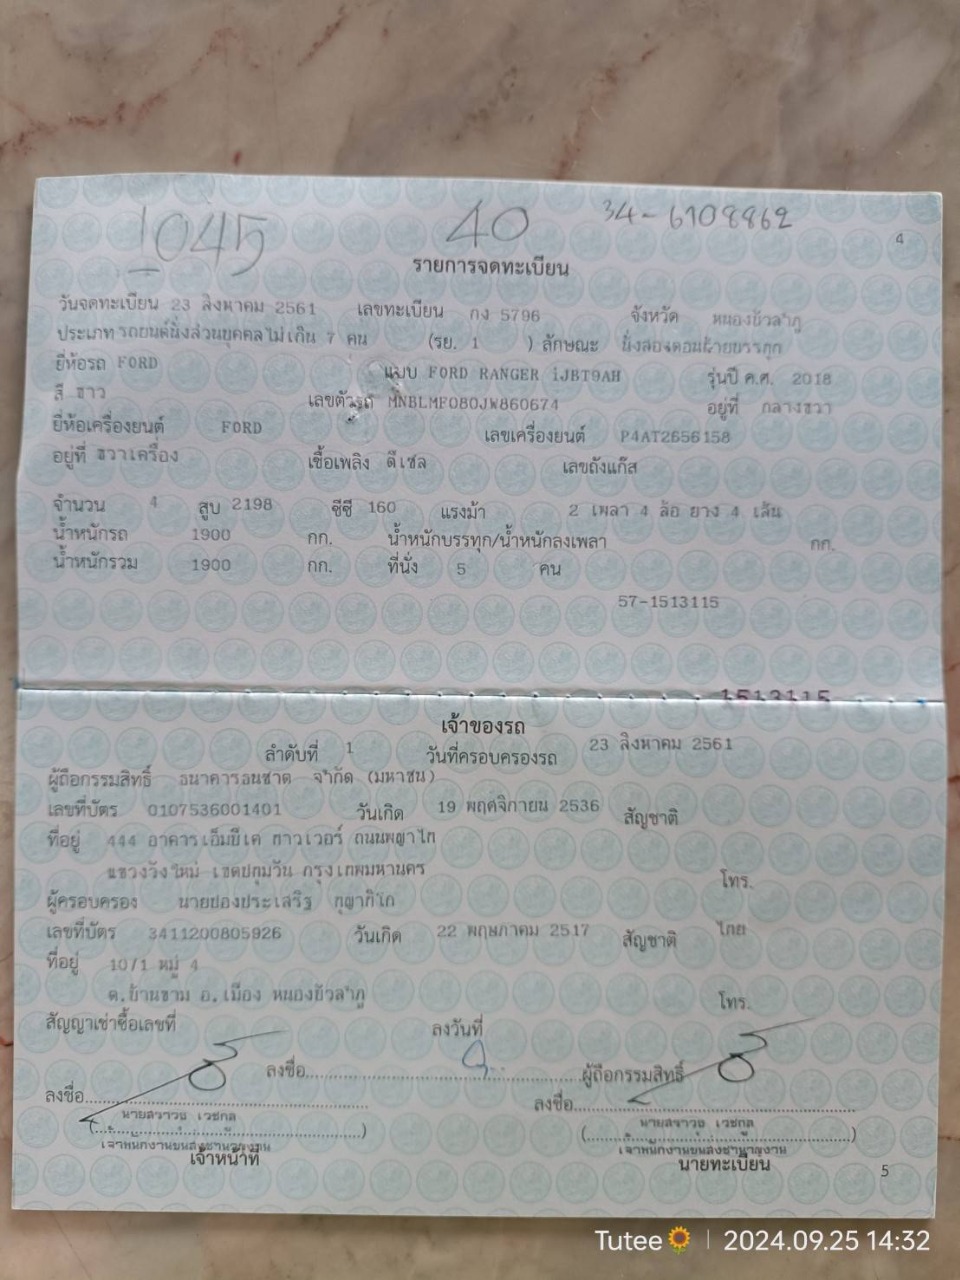 1045 40 34-6108862
4
รายการจดทะเบียน
วันจดทะเบียน 23 สิงหาคม 2561 เลขทะเบียน กง 5796 จังหวัด หนองบัวลำภู
ประเภท รถยนต์นั่งส่วนบุคคลไม่เกิน 7 คน (รย. 1 ) ลักษณะ นั่งสองตอนท้ายบรรทุก
ยี่ห้อรถ FORD แบบ FORD RANGER 1JBT9AH รุ่นปี ค.ศ. 2018
สี ขาว เลขตัวรถ MNBLMF080JW860674 อยู่ที่ กลางขวา
ยี่ห้อเครื่องยนต์ FORD เลขเครื่องยนต์ P4AT2656158
อยู่ที่ ขวาเครื่อง เชื้อเพลิง ดีเซล เลขถังแก๊ส
จำนวน 4 สูบ 2198 ซีซี 160 แรงม้า 2 เพลา 4 ล้อ ยาง 4 เส้น
น้ำหนักรถ 1900 กก. น้ำหนักบรรทุก/น้ำหนักลงเพลา กก.
น้ำหนักรวม 1900 กก. ที่นั่ง 5 คน
57-1513115
1513115
เจ้าของรถ
ลำดับที่ 1 วันที่ครอบครองรถ 23 สิงหาคม 2561
ผู้ถือกรรมสิทธิ์ ธนาคารธนชาต จำกัด (มหาชน)
เลขที่บัตร 0107536001401 วันเกิด 19 พฤศจิกายน 2536 สัญชาติ
ที่อยู่ 444 อาคารเอ็มบีเค ทาวเวอร์ ถนนพญาไท
แขวงวังใหม่ เขตปทุมวัน กรุงเทพมหานคร โทร.
ผู้ครอบครอง นายปองประเสริฐ
เลขที่บัตร 3411200805926 วันเกิด 22 พฤษภาคม 2517 สัญชาติ ไทย
ที่อยู่ 10/1 หมู่ 4
ต.บ้านขาม อ.เมือง หนองบัวลำภู โทร.
สัญญาเช่าซื้อเลขที่ ลงวันที่
ลงชื่อ ผู้ถือกรรมสิทธิ์
ลงชื่อ ลงชื่อ
นายสราวุธ เวชกูล นายสราวุธ เวชกูล
( ) ( )
เจ้าพนักงานขนส่งชำนาญงาน เจ้าพนักงานขนส่งชำนาญงาน
เจ้าหน้าที่ นายทะเบียน
5
Tutee🌻 | 2024.09.25 14:32